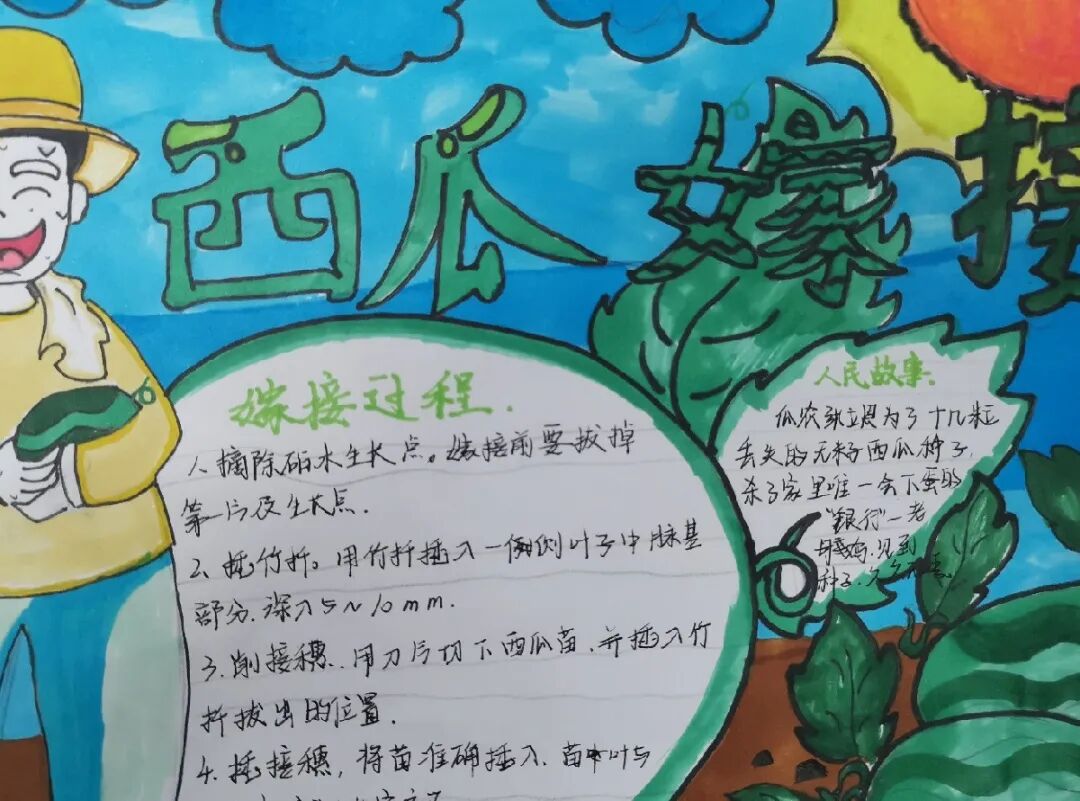 西瓜嫁接
嫁接过程.
1、摘除砧木生长点。嫁接前要拔掉
第一片及生长点.
2、插竹扦。用竹扦插入一侧叶子中脉基
部分.深入5~10mm.
3.削接穗.用刀片切下西瓜苗、并插入竹
扦拔出的位置.
4.插接穗,将苗准确插入、苗叶与
人民故事.
瓜农张立恩为了十几粒
丢失的无籽西瓜种子,
杀了家里唯一会下蛋的
"银行"一老
母鸡.见到
种子.